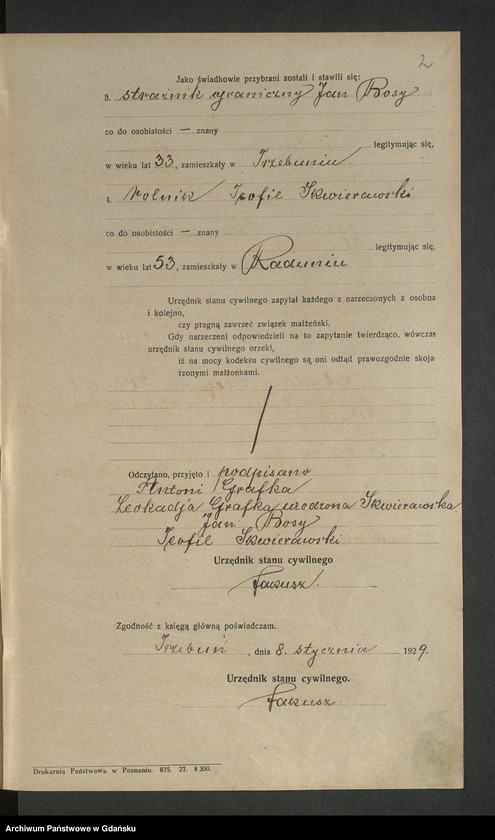 2
Jako świadkowie przybrani zostali i stawili się:
3. strażnik graniczny Jan Bosy
co do osobistości — znany
legitymując się,
w wieku lat 33, zamieszkały w Trzebuniu
4. rolnik Teofil Skwierawski
co do osobistości — znany
legitymując się,
w wieku lat 53, zamieszkały w Raduniu
Urzędnik stanu cywilnego zapytał każdego z narzeczonych z osobna
i kolejno,
czy pragną zawrzeć związek małżeński.
Gdy narzeczeni odpowiedzieli na to zapytanie twierdząco, wówczas
urzędnik stanu cywilnego orzekł,
iż na mocy kodeksu cywilnego są oni odtąd prawozgodnie skoja-
rzonymi małżonkami.
Odczytano, przyjęto i podpisano
Antoni Grafka
Leokadja Grafka urodzona Skwierawska
Jan Bosy
Teofil Skwierawski
Urzędnik stanu cywilnego
Jakusz.
Zgodność z księgą główną poświadczam.
Trzebuń, dnia 8. stycznia 1929.
Urzędnik stanu cywilnego.
Jakusz.
Drukarnia Państwowa w Poznaniu. 875. 27. 8 300.
Archiwum Państwowe w Gdańsku